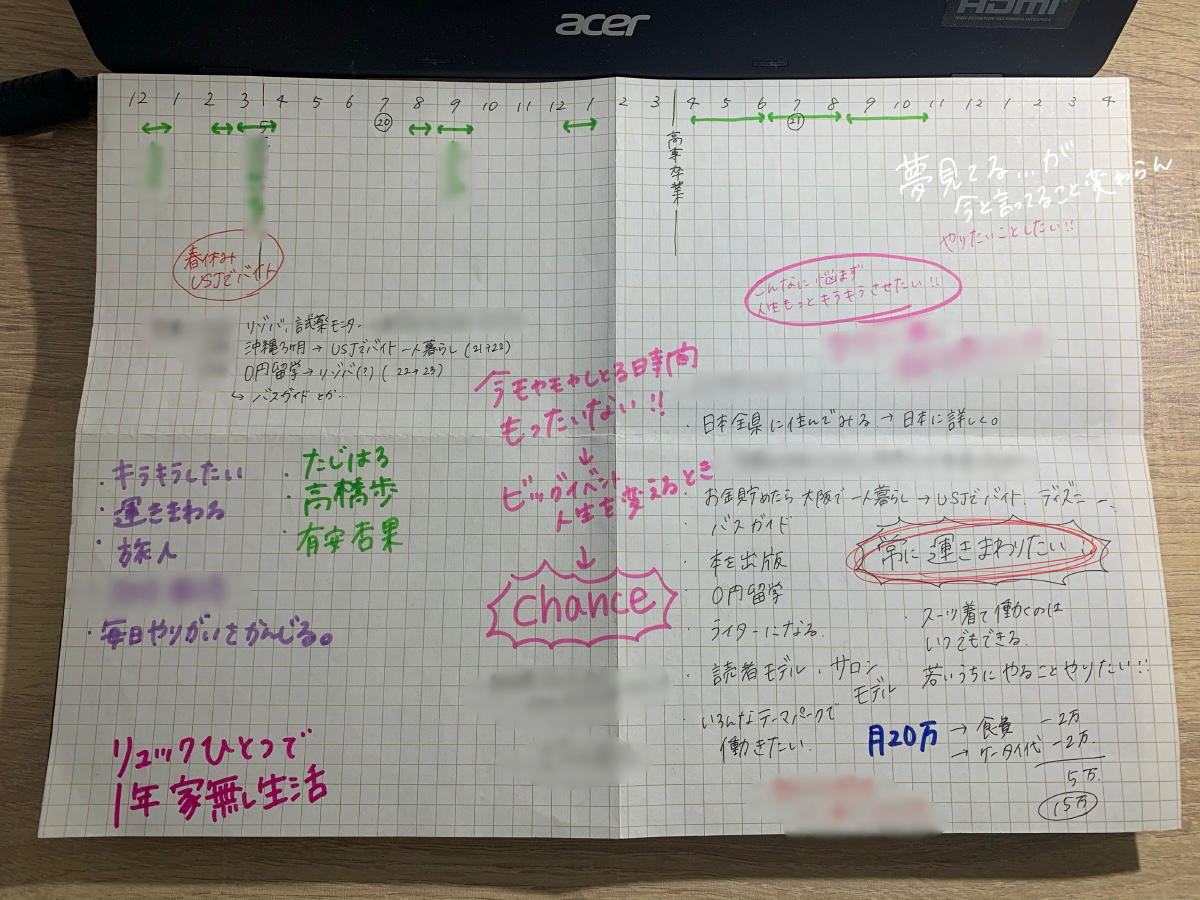 acer
HDMI
HIGH-DEFINITION MULTIMEDIA INTERFACE
12 1 2 3 4 5 6 7 8 9 10 11 12 1 2 3 4 5 6 7 8 9 10 11 12 1 2 3 4
⑳ ㉑
高専卒業
夢見てる…が
今と言ってること変わらん
やりたいことしたい!!
春休み
USJでバイト
こんなに悩まず
人生もっとキラキラさせたい!!
リゾバ、試薬モニター
沖縄3ヶ月→USJでバイト一人暮らし(21→22)
0円留学→リゾバ(?)(22→23)
↳バスガイドとか…
今モヤモヤしとる時間
もったいない!!
↓
ビッグイベント
人生を変えるとき
↓
chance
・日本全県に住んでみる。→日本に詳しく。
・キラキラしたい
・運きまわる
・旅人
・毎日やりがいをかんじる。
・たじはる
・高橋歩
・有安杏果
・お金貯めたら大阪で一人暮らし→USJでバイト、ディズニー
・バスガイド
・本を出版
・0円留学
・ライターになる。
・読者モデル、サロン
モデル
・いろんなテーマパークで
働きたい。
常に運きまわりたい!
・スーツ着て働くのは
いつでもできる。
若いうちにやることやりたい!!
月20万→食費 -2万
→ケータイ代 -2万.
5万.
15万
リュックひとつで
1年家無し生活